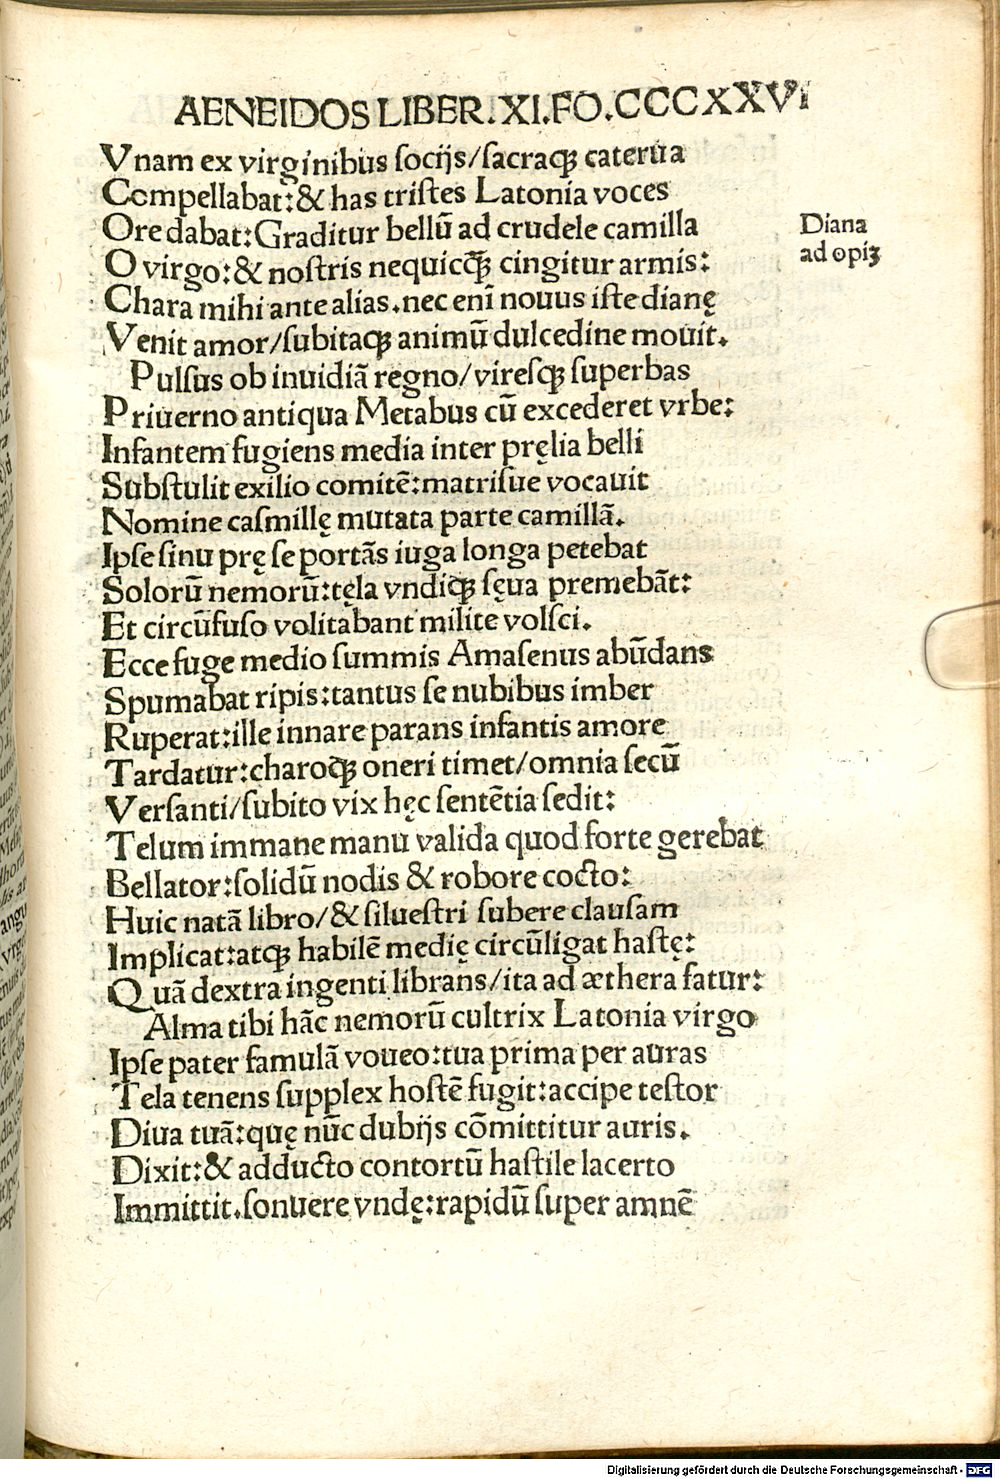 AENEIDOS LIBER. XI. FO. CCCXXVI
Vnam ex virginibus ſocijs/ſacraqꝫ caterua
Compellabat:& has triſtes Latonia voces
Ore dabat:Graditur bellū ad crudele camilla
Diana
ad opiꝫ
O virgo:& noſtris nequicꝗ̄ cingitur armis:
Chara mihi ante alias.nec enī nouus iſte dianę
Venit amor/ſubitaqꝫ animū dulcedine mouit.
Pulſus ob inuidiā regno/vireſqꝫ ſuperbas
Priuerno antiqua Metabus cū excederet vrbe:
Infantem fugiens media inter pręlia belli
Subſtulit exilio comitē:matriſue vocauit
Nomine caſmillę mutata parte camillā.
Ipſe ſinu prę ſe portās iuga longa petebat
Solorū nemorū:tęla vndiqꝫ ſęua premebāt:
Et circūfuſo volitabant milite volſci.
Ecce fuge medio ſummis Amaſenus abūdans
Spumabat ripis:tantus ſe nubibus imber
Ruperat:ille innare parans infantis amore
Tardatur:charoqꝫ oneri timet/omnia ſecū
Verſanti/ſubito vix hęc ſentētia ſedit:
Telum immane manu valida quod forte gerebat
Bellator:ſolidū nodis & robore cocto:
Huic natā libro/& ſilueſtri ſubere clauſam
Implicat:atqꝫ habilē medię circūligat haſtę:
Quā dextra ingenti librans/ita ad æthera fatur:
Alma tibi hāc nemorū cultrix Latonia virgo
Ipſe pater famulā voueo:tua prima per auras
Tela tenens ſupplex hoſtē fugit:accipe teſtor
Diua tuā:quę nūc dubijs cōmittitur auris.
Dixit:& adducto contortū haſtile lacerto
Immittit.ſonuere vndę:rapidū ſuper amnē
Digitalisierung gefördert durch die Deutsche Forschungsgemeinschaft - DFG